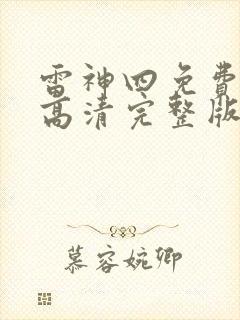 雷神四免费
高清完整版
慕容婉卿